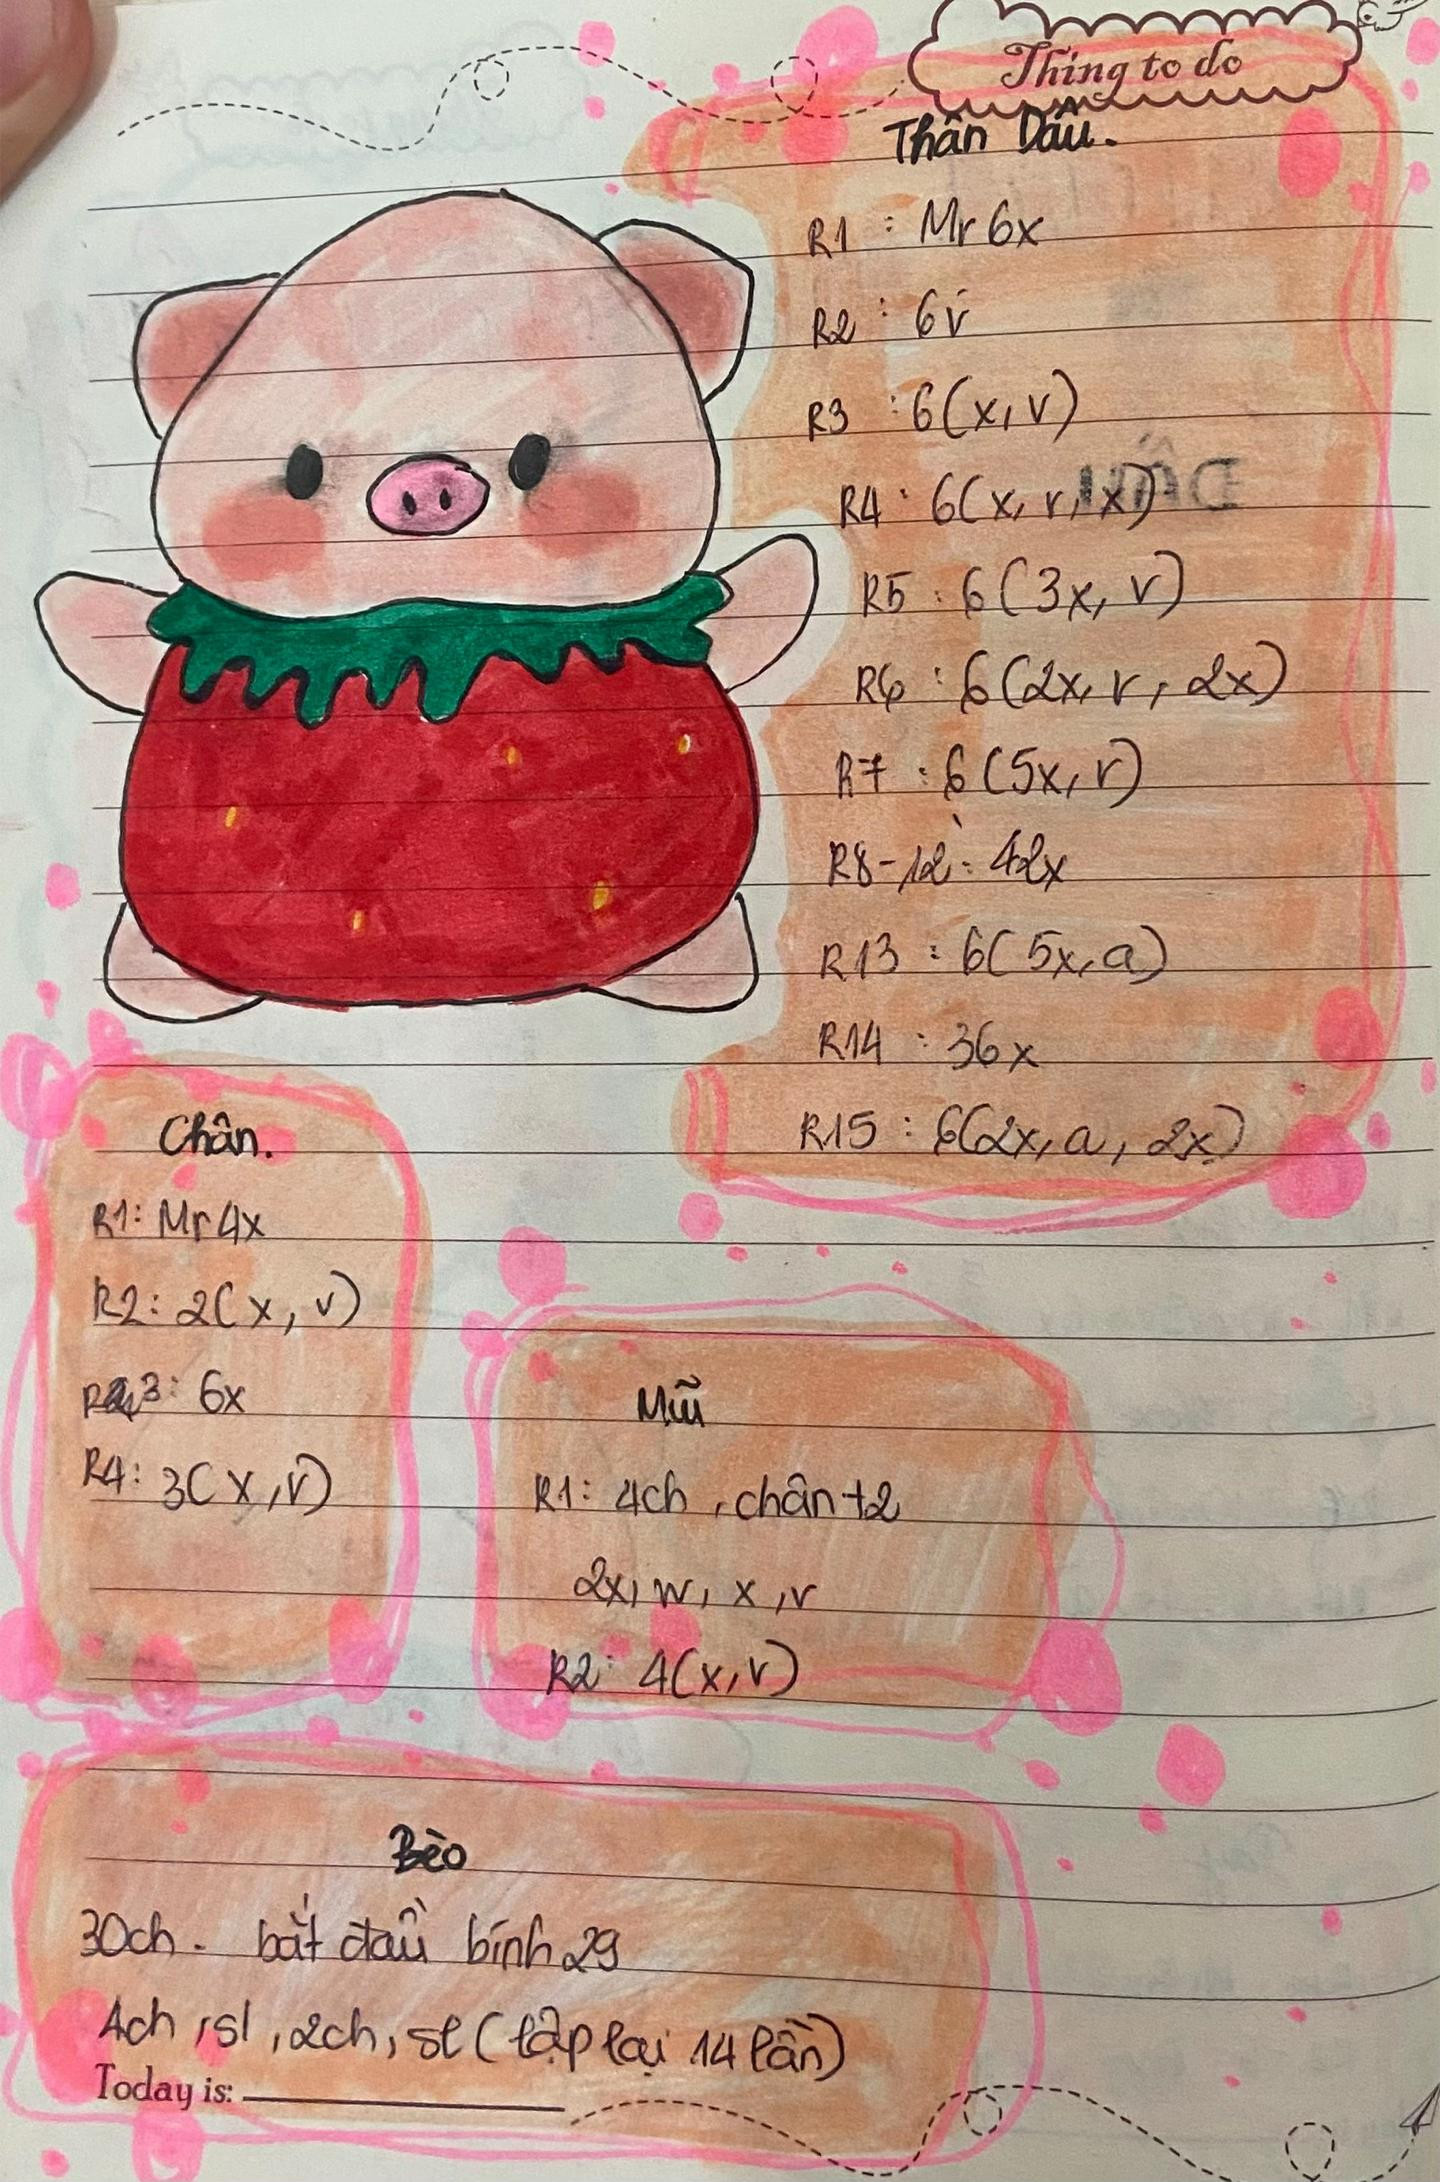 Thing to do
Thân Dâu.
R1 : Mr 6x
R2 : 6v
R3 : 6(x, v)
R4 : 6(x, v, x)
R5 : 6(3x, v)
R6 : 6(2x, v, 2x)
R7 : 6(5x, v)
R8-12 : 42x
R13 : 6(5x, a)
R14 : 36x
R15 : 6(2x, a, 2x)
Chân.
R1: Mr 4x
R2: 2(x, v)
R3: 6x
R4: 3(x, v)
Mũi
R1: 4ch, chân t2
2x, w, x, v
R2: 4(x, v)
Bèo
30ch. bắt đầu bính 29
4ch, sl, 2ch, sl (lặp lại 14 lần)
Today is: